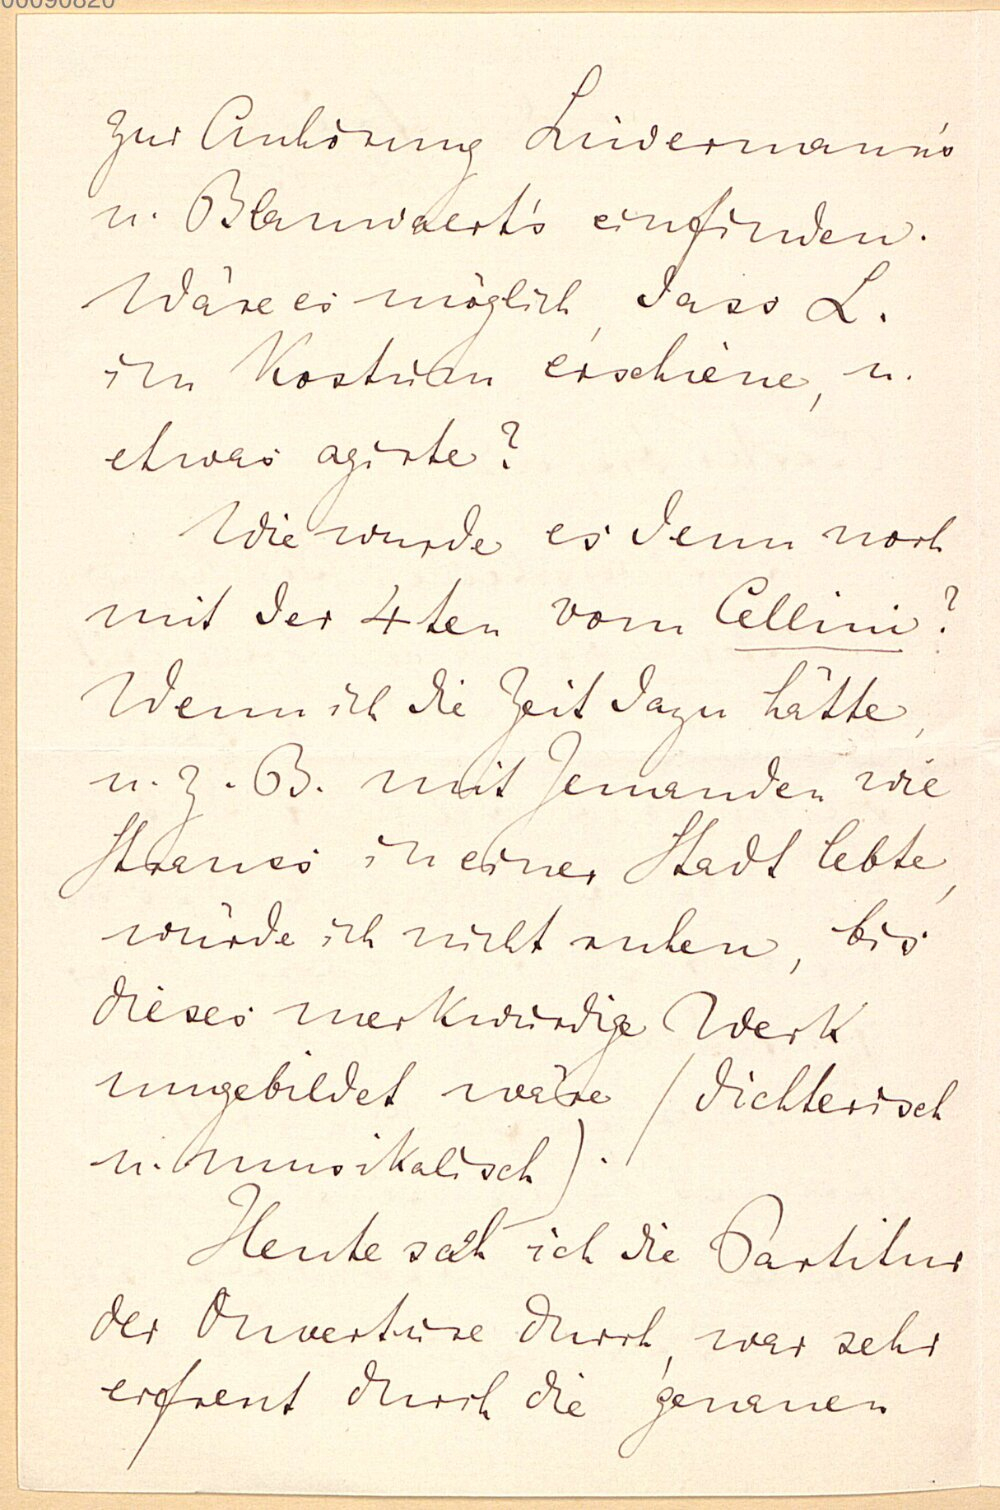 00090820
zur Anhörung Lindermann's
u. Blauwaert's einfinden.
Wäre es möglich, dass L.
im Kostüm erschiene, u.
etwas agirte?
Wie wurde es denn noch
mit der 4ten vom Cellini?
Wenn ich die Zeit dazu hätte,
u. z. B. mit Jemanden wie
Strauss in einer Stadt lebte,
würde ich nicht ruhen, bis
dieses merkwürdige Werk
umgebildet wäre (dichterisch
u. musikalisch).
Heute sah ich die Partitur
der Ouverture durch, war sehr
erfreut durch die genauen